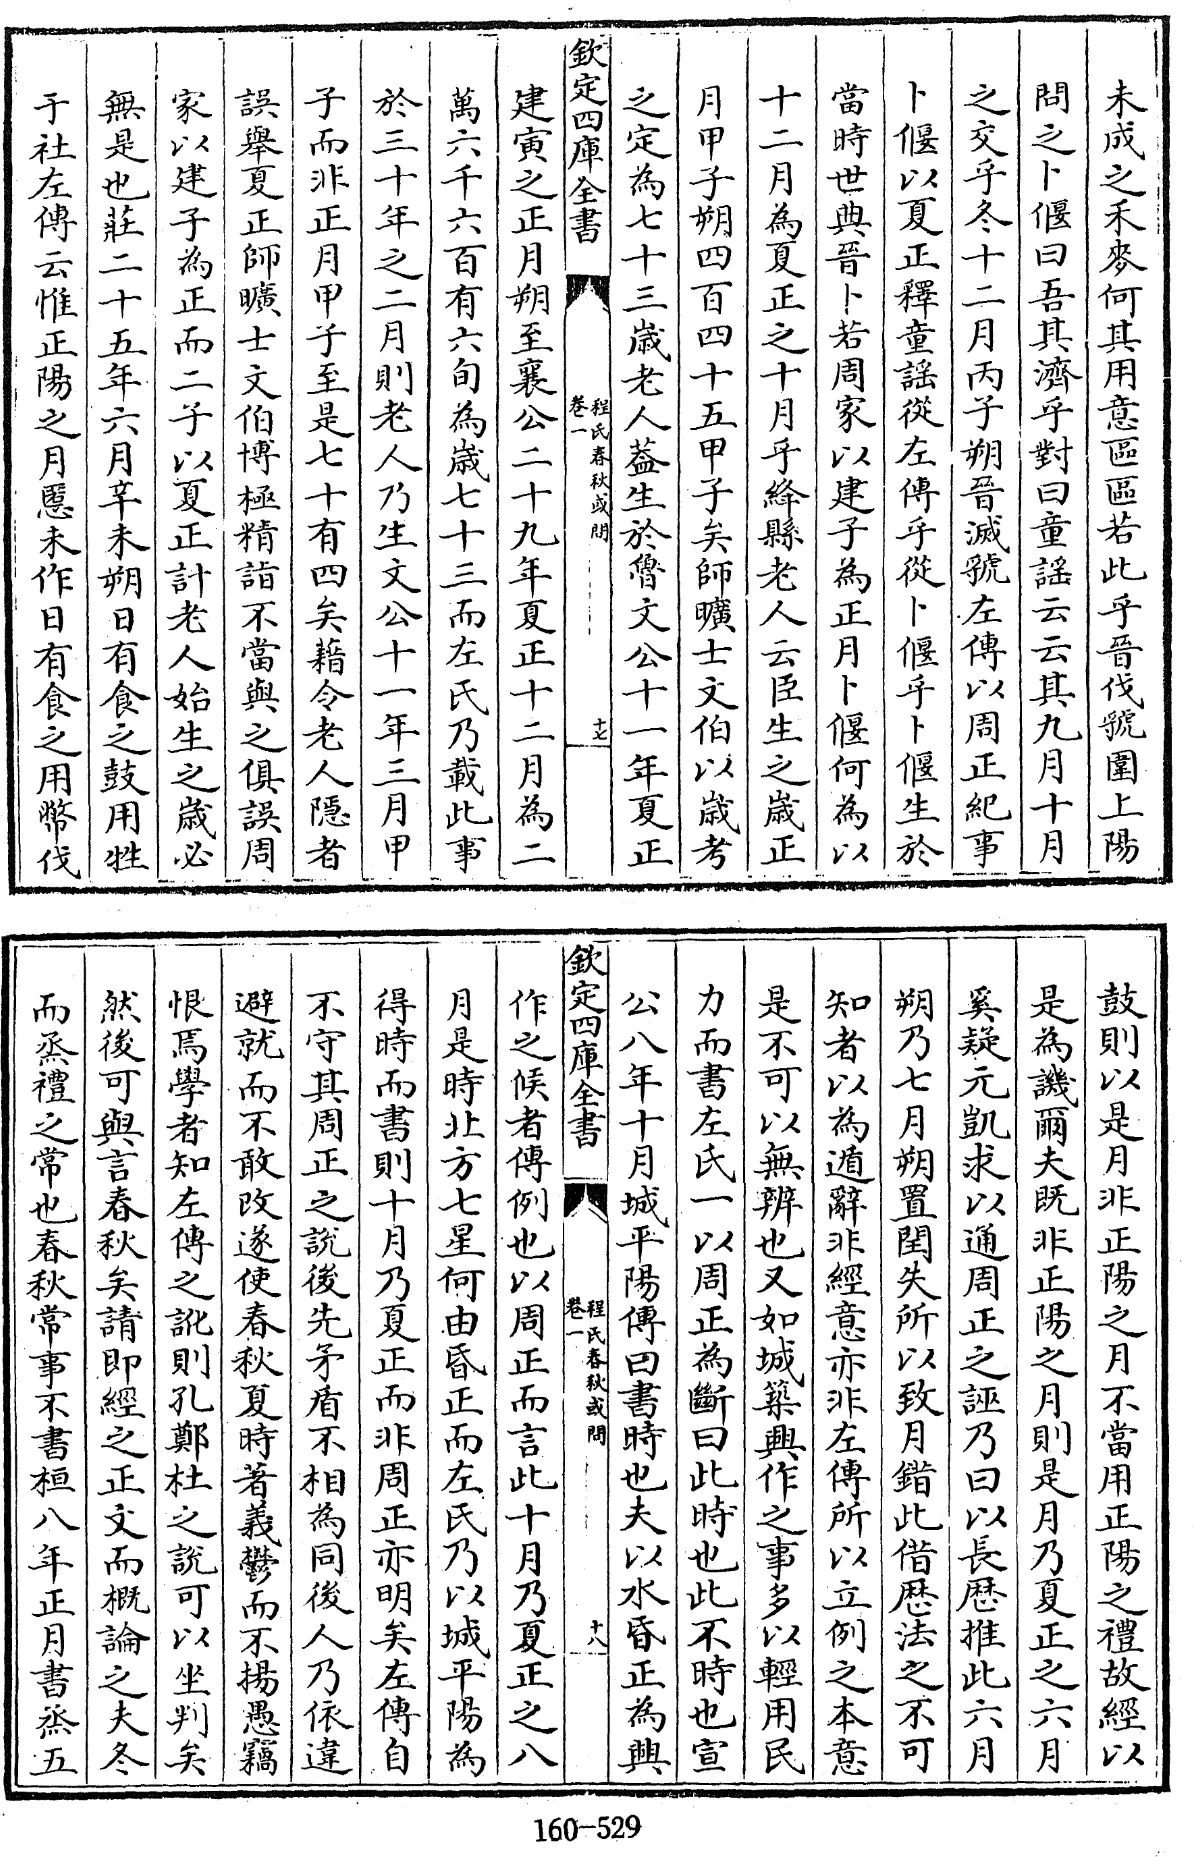 未成之禾麥何其用意區區若此乎晉伐虢圍上陽
問之卜偃曰吾其濟乎對曰童謠云云其九月十月
之交乎冬十二月丙子朔晉滅虢左傳以周正紀事
卜偃以夏正釋童謠從左傳乎從卜偃乎卜偃生於
當時世典晉卜若周家以建子為正月卜偃何為以
十二月為夏正之十月乎絳縣老人云臣生之歲正
月甲子朔四百四十五甲子矣師曠士文伯以歲考
之定為七十三歲老人葢生於魯文公十一年夏正
欽定四庫全書
程氏春秋或問
卷一
十七
建寅之正月朔至襄公二十九年夏正十二月為二
萬六千六百有六旬為歲七十三而左氏乃載此事
於三十年之二月則老人乃生文公十一年三月甲
子而非正月甲子至是七十有四矣藉令老人隱者
誤舉夏正師曠士文伯博極精詣不當與之俱誤周
家以建子為正而二子以夏正計老人始生之歲必
無是也莊二十五年六月辛未朔日有食之鼓用牲
于社左傳云惟正陽之月慝未作日有食之用幣伐
鼓則以是月非正陽之月不當用正陽之禮故經以
是為譏爾夫既非正陽之月則是月乃夏正之六月
奚疑元凱求以通周正之誣乃曰以長歷推此六月
朔乃七月朔置閏失所以致月錯此借歷法之不可
知者以為遁辭非經意亦非左傳所以立例之本意
是不可以無辨也又如城築興作之事多以輕用民
力而書左氏一以周正為斷曰此時也此不時也宣
公八年十月城平陽傳曰書時也夫以水昏正為興
欽定四庫全書
程氏春秋或問
卷一
十八
作之候者傳例也以周正而言此十月乃夏正之八
月是時北方七星何由昏正而左氏乃以城平陽為
得時而書則十月乃夏正而非周正亦明矣左傳自
不守其周正之說後先矛盾不相為同後人乃依違
避就而不敢改遂使春秋夏時著義鬱而不揚愚竊
恨焉學者知左傳之訛則孔鄭杜之說可以坐判矣
然後可與言春秋矣請即經之正文而概論之夫冬
而烝禮之常也春秋常事不書桓八年正月書烝五
160-529